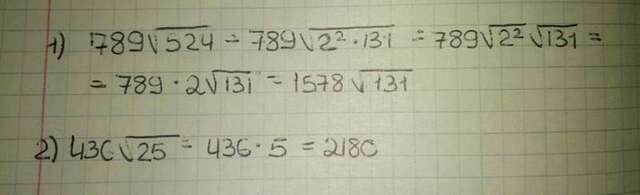 1) 789√524 = 789√2²·131 = 789√2² √131 =
= 789·2√131 = 1578√131
2) 436√25 = 436·5 = 2180